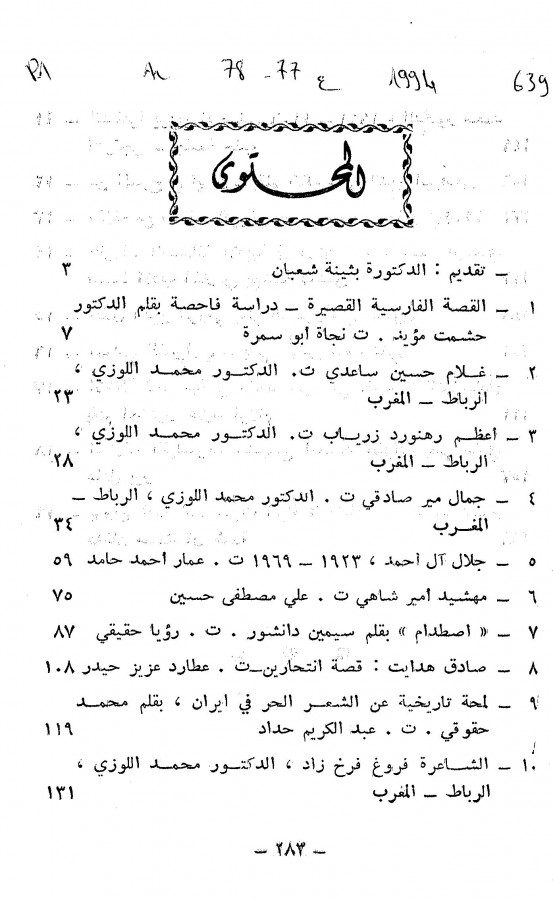 PA An 78-77 ع 1994 639
المحتوى
ـ تقديم : الدكتورة بثينة شعبان ٣
١ ـ القصة الفارسية القصيرة ـ دراسة فاحصة بقلم الدكتور
حشمت مؤيد . ت نجاة أبو سمرة ٧
٢ ـ غلام حسين ساعدي ت. الدكتور محمد اللوزي ،
الرباط ـ المغرب ٢٣
٣ ـ أعظم رهنورد زرياب ت. الدكتور محمد اللوزي ،
الرباط ـ المغرب ٢٨
٤ ـ جمال مير صادقي ت . الدكتور محمد اللوزي ، الرباط ـ
المغرب ٣٤
٥ ـ جلال آل أحمد ، ١٩٢٣ ـ ١٩٦٩ ت . عمار أحمد حامد ٥٩
٦ ـ مهشيد أمير شاهي ت . علي مصطفى حسين ٧٥
٧ ـ « اصطدام » بقلم سيمين دانشور . ت . رؤيا حقيقي ٨٧
٨ ـ صادق هدايت : قصة انتحارين ـ ت . عطارد عزيز حيدر ١٠٨
٩ ـ لمحة تاريخية عن الشعر الحر في ايران ، بقلم محمد
حقوقي . ت . عبد الكريم حداد ١١٩
١٠ ـ الشاعرة فروغ فرخ زاد ، الدكتور محمد اللوزي ،
الرباط ـ المغرب ١٣١
ـ ٢٨٣ ـ